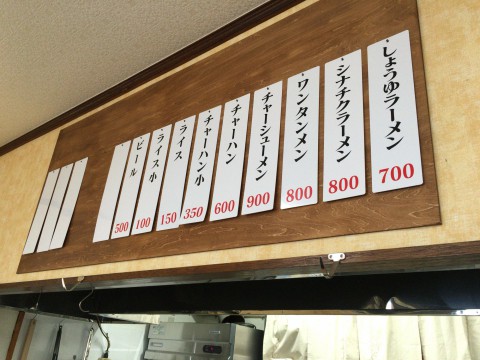 しょうゆラーメン
700
シナチクラーメン
800
ワンタンメン
800
チャーシューメン
900
チャーハン
600
チャーハン小
350
ライス
150
ライス小
100
ビール
500